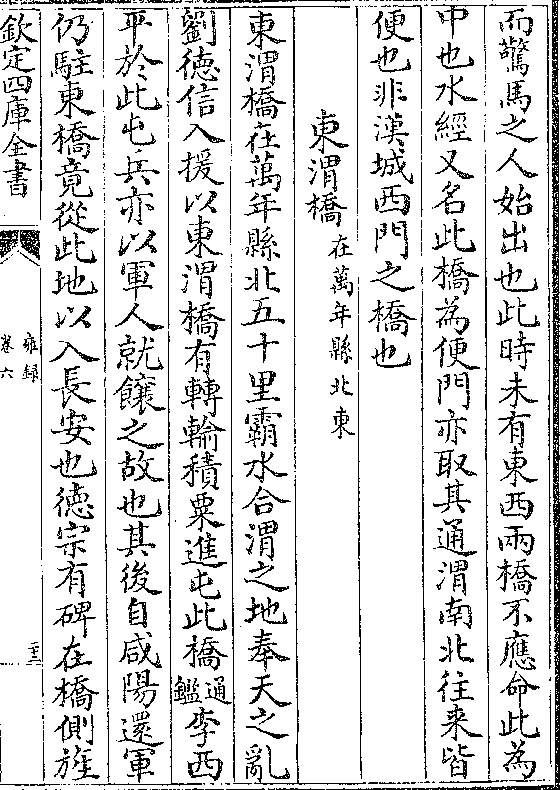 而驚馬之人始出也此時未有東西兩橋不應命此為
中也水經又名此橋為便門亦取其通渭南北往来皆
便也非漢城西門之橋也
東渭橋在萬年縣北東
東渭橋在萬年縣北五十里霸水合渭之地奉天之亂
劉徳信入援以東渭橋有轉輸積粟進屯此橋通鑑李西
平於此屯兵亦以軍人就饟之故也其後自咸陽還軍
仍駐東橋竟從此地以入長安也徳宗有碑在橋側旌
欽定四庫全書
雍録
卷六
二十三